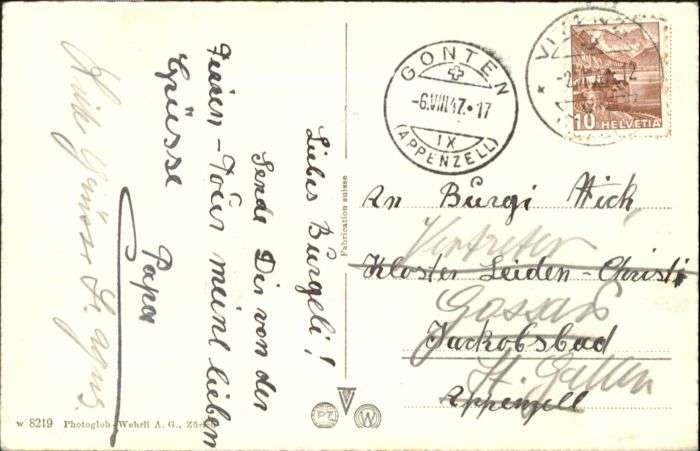 Liebes Bürgeli!
Sende Dir von der
Ferien-Tour meine lieben
Grüsse
Papa
GONTEN
-6.VIII.47.-17
IX
(APPENZELL)
10 HELVETIA
Fabrication suisse
An Bürgi Wick
Vertreter
Kloster Leiden-Christi
Gossau
Jackobsbad
St. Gallen
Appenzell
PZ
W
w 8219 Photoglob-Wehrli A. G., Zürich